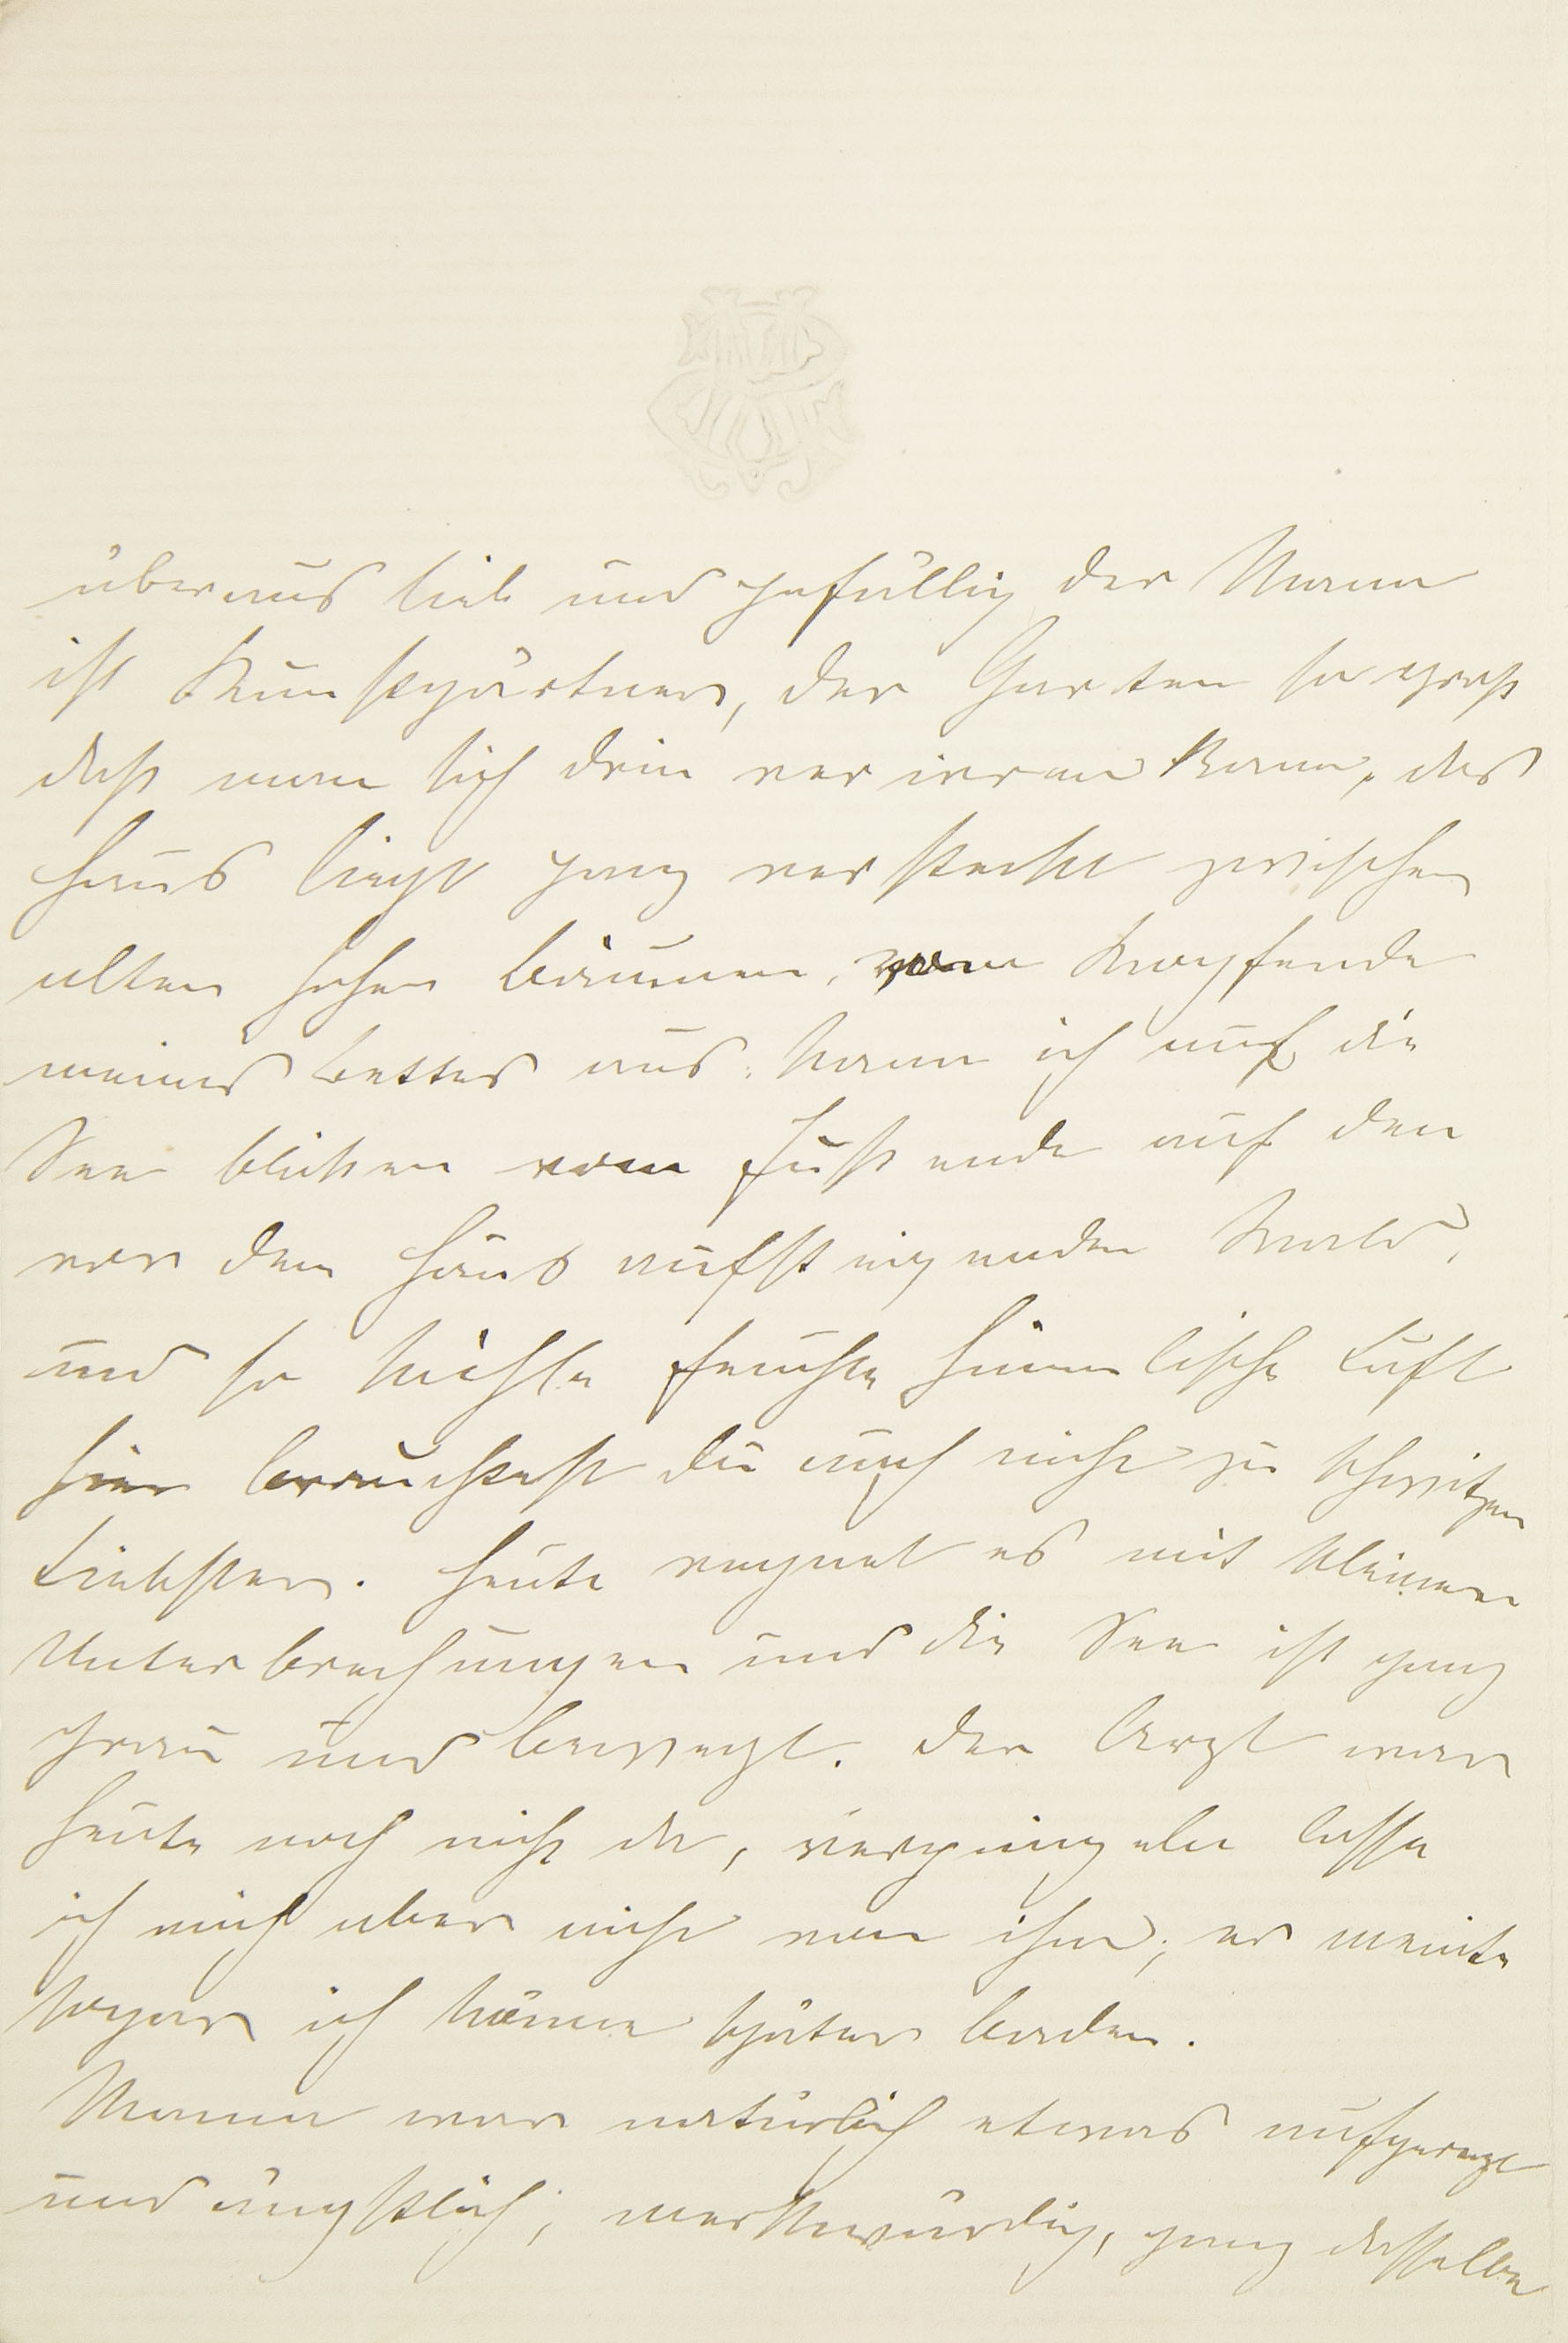 überaus lieb und gefällig der Mann
ist Kunstgärtner, der Garten so groß
daß man sich drin verirren kann, das
Haus liegt ganz versteckt zwischen
alten hohen Bäumen, vom Kopfende
meines Bettes aus kann ich auf die
See blicken vom Fußende auf den
vor dem Haus aufsteigenden Wald,
und so kühle feuchte himmlische Luft
hier brauchtest du auch nicht zu schwitzen
Liebster. Heute regnet es mit kleinen
Unterbrechungen und die See ist ganz
grau und bewegt. Der Arzt war
heute noch nicht da, lasse
ich mich aber nicht von ihm; er meinte
sogar ich könne später baden.
Mama war natürlich etwas aufgeregt
und ängstlich; merkwürdig, ganz dasselbe